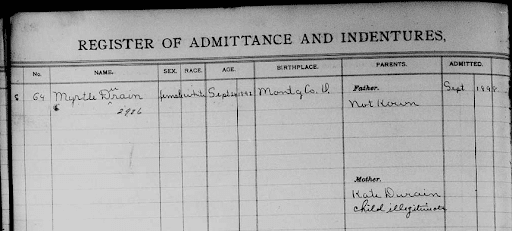 REGISTER OF ADMITTANCE AND INDENTURES,
No. NAME. SEX. RACE. AGE. BIRTHPLACE. PARENTS. ADMITTED.
64 Myrtle Drain female White Sept 1892 Montg Co. O. Father. Sept
u
2986 Not Kown
Mother.
Kate Durain
child illegitimate